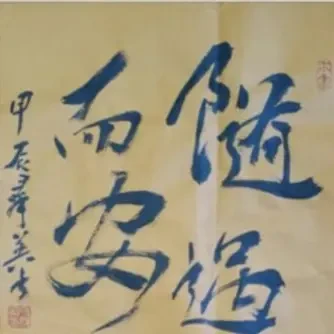 随遇
而安
甲辰